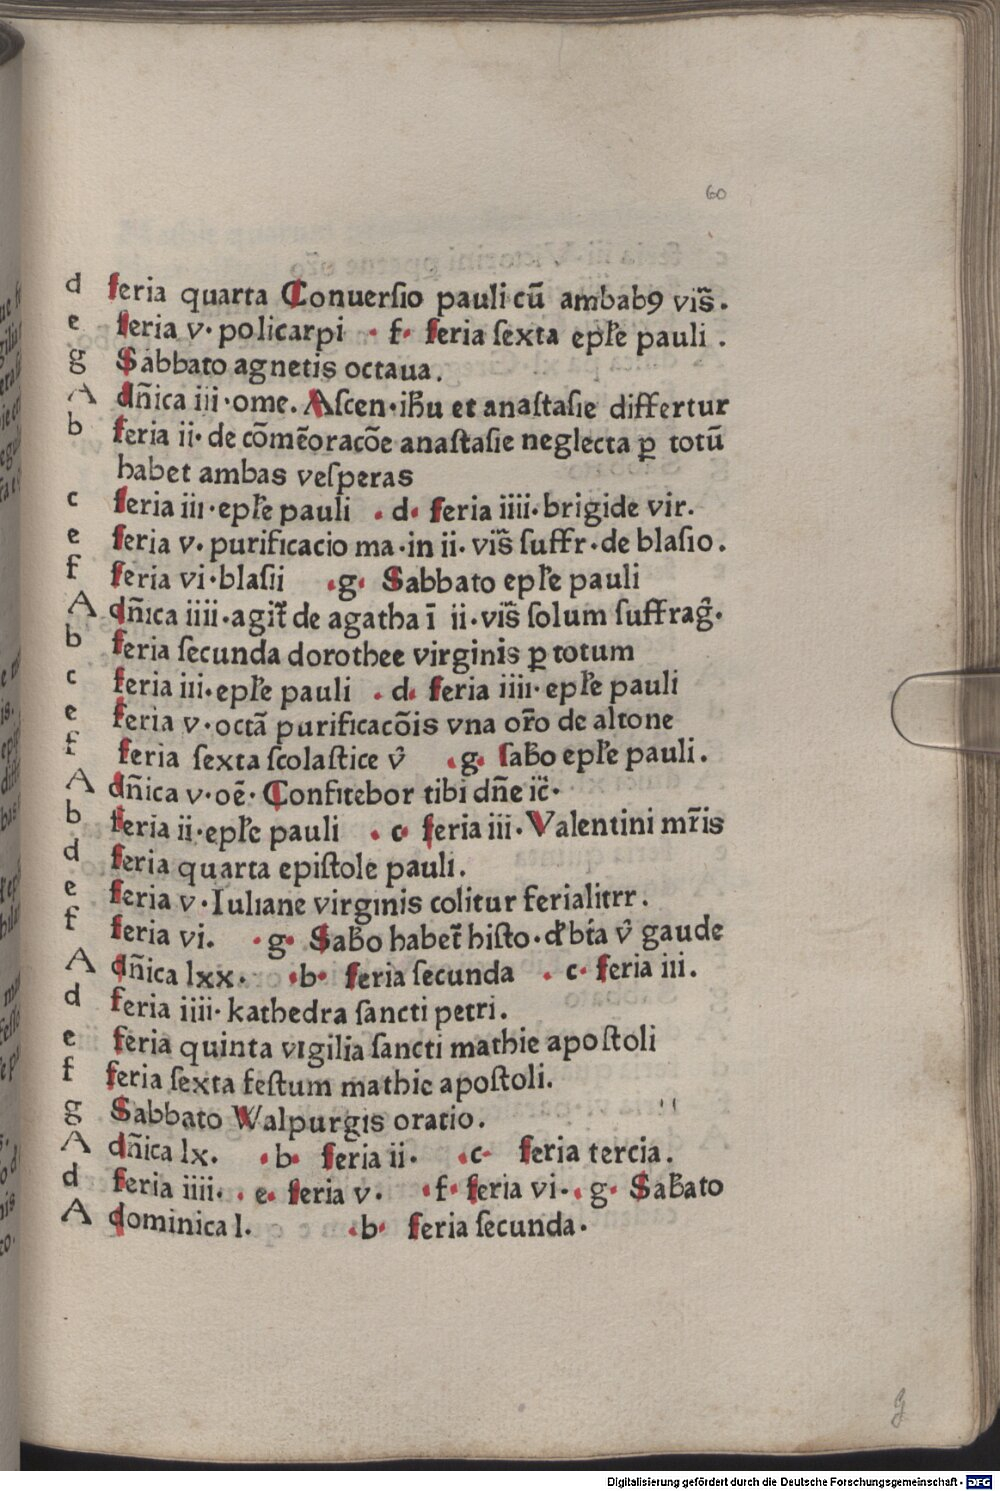 60
d feria quarta Conuerſio pauli cū ambabꝰ viſ̃.
e feria v · policarpi · f · feria ſexta epl̃e pauli .
g Sabbato agnetis octaua .
A dñica iii · ome. Aſcen · ihu̅ et anaſtaſie differtur
b feria ii · de cõmẽoracõe anaſtaſie neglecta ꝑ totū
habet ambas veſperas
c feria iii · epl̃e pauli . d · feria iiii · brigide vir.
e feria v. purificacio ma · in ii · viſ̃ ſuffr · de blaſio .
f feria vi · blaſii · g · Sabbato epl̃e pauli
A dñica iiii · agit̃ de agatha ī ii · viſ̃ ſolum ſuffrag̃ ·
b feria ſecunda dorothee virginis ꝑ totum
c feria iii · epl̃e pauli . d . feria iiii · epl̃e pauli
e feria v · octã purificacõis vna or̃o de altone
f feria ſexta ſcolaſtice ṽ . g . ſabo̅ epl̃e pauli .
A dñica v · oẽ · Confitebor tibi dñe ic̃ ·
b feria ii · epl̃e pauli . c · feria iii · Valentini mr̃is
d feria quarta epiſtole pauli .
e feria v · Iuliane virginis colitur ferialitrr .
f feria vi . · g · Sabo̅ habet̃ hiſto · ð bt̃a ṽ gaude
A dñica lxx · · b · feria ſecunda . c · feria iii .
d feria iiii · kathedra ſancti petri .
e feria quinta vigilia ſancti mathie apoſtoli
f feria ſexta feſtum mathie apoſtoli.
g Sabbato Walpurgis oratio .
A dñica lx . · b · feria ii · . c · feria tercia .
d feria iiii · . e · feria v . · f · feria vi · . g · Sab̅ato
A dominica l . . b · feria ſecunda ·
g
Digitalisierung gefördert durch die Deutsche Forschungsgemeinschaft - DFG